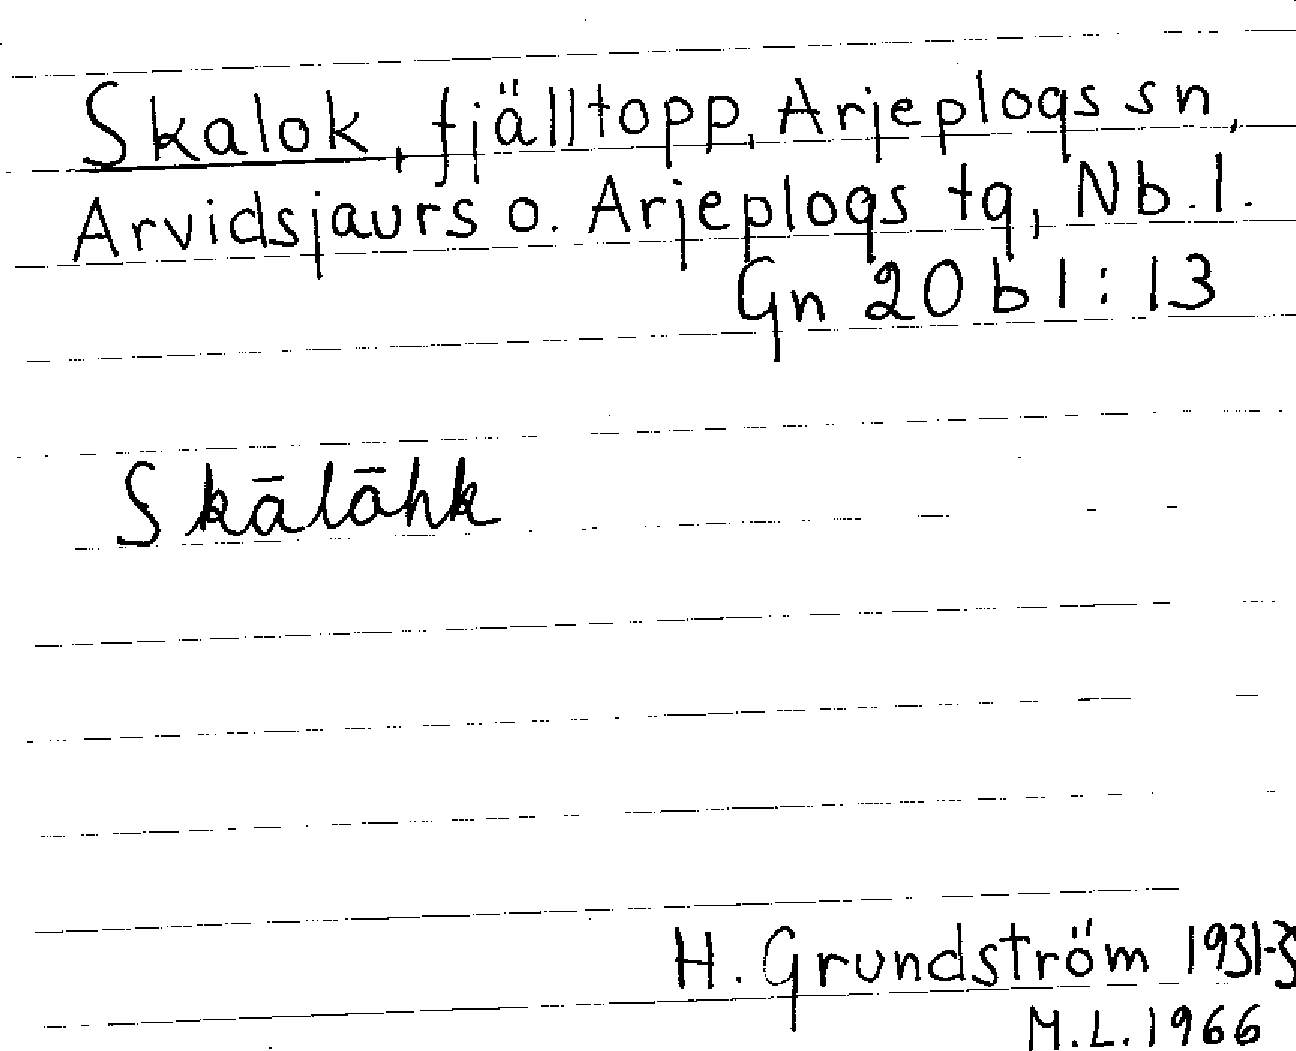 Skalok, fjälltopp, Arjeplogs sn,
Arvidsjaurs o. Arjeplogs tg, Nb. l.
Gn 20 b 1 : 13
Skālāhk
H. Grundström 1931-3
M.L. 1966